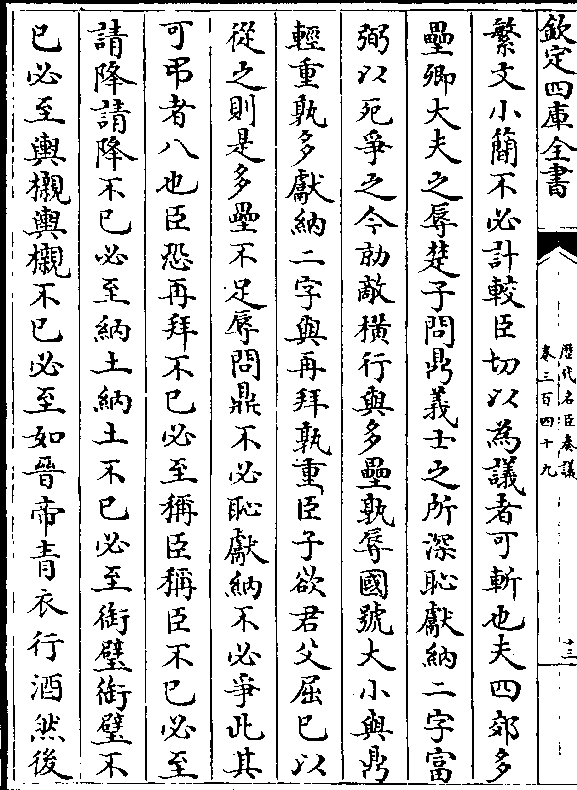 欽定四庫全書
歷代名臣奏議
卷三百四十九
十三
繁文小簡不必計較臣切以為議者可斬也夫四郊多
壘卿大夫之辱楚子問鼎義士之所深恥獻納二字富
弼以死爭之今勍敵橫行與多壘孰辱國號大小與鼎
輕重孰多獻納二字與再拜孰重臣子欲君父屈已以
從之則是多壘不足辱問鼎不必恥獻納不必爭此其
可弔者八也臣恐再拜不已必至稱臣稱臣不已必至
請降請降不已必至納土納土不已必至銜璧銜璧不
已必至輿櫬輿櫬不已必至如晉帝青衣行酒然後